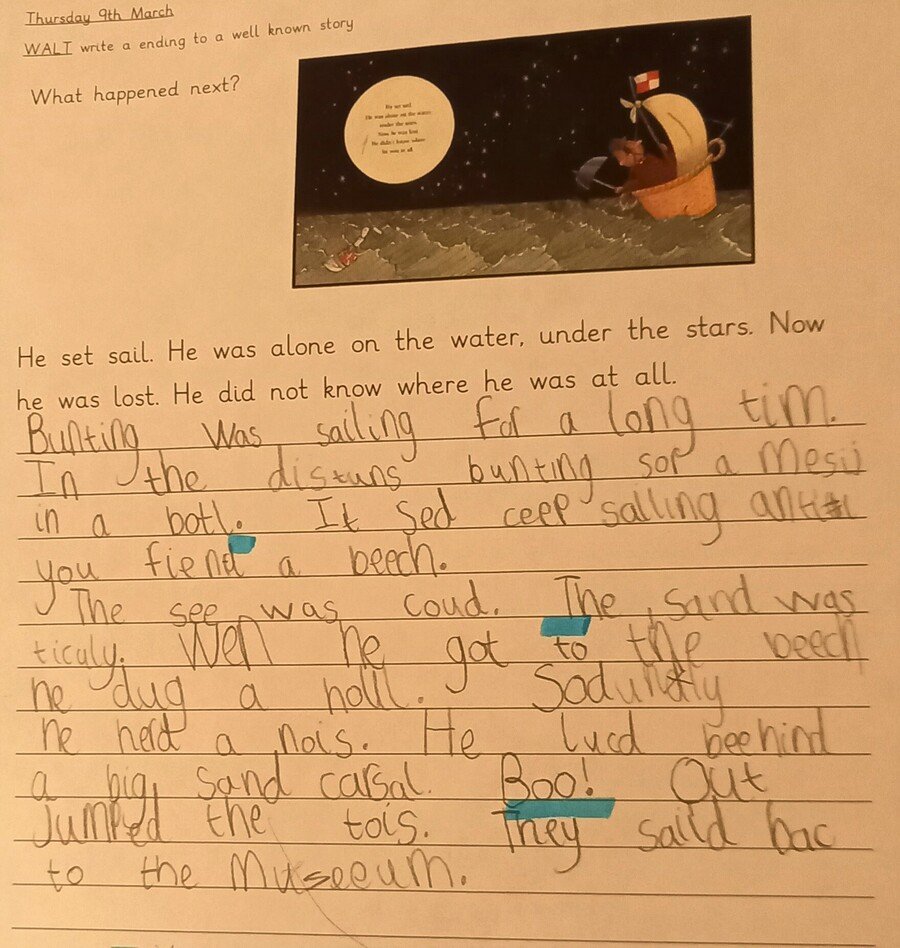 Thursday 9th March
WALT write a ending to a well known story
What happened next?
He set sail.
He was alone on the water,
under the stars.
Now he was lost.
He didn't know where
he was at all.
He set sail. He was alone on the water, under the stars. Now
he was lost. He did not know where he was at all.
Bunting was sailing for a long tim.
In the distuns bunting sor a Mesij
in a botl. It sed ceep salling
you fiend a beech.
The see was coud. The sand was
ticuly. Wen he got to the beech
he dug a holl.
he herd a nois. He lucd beehind
a big sand carsal. Boo! Out
Jumped the tois. They saild bac
to the Museeum.